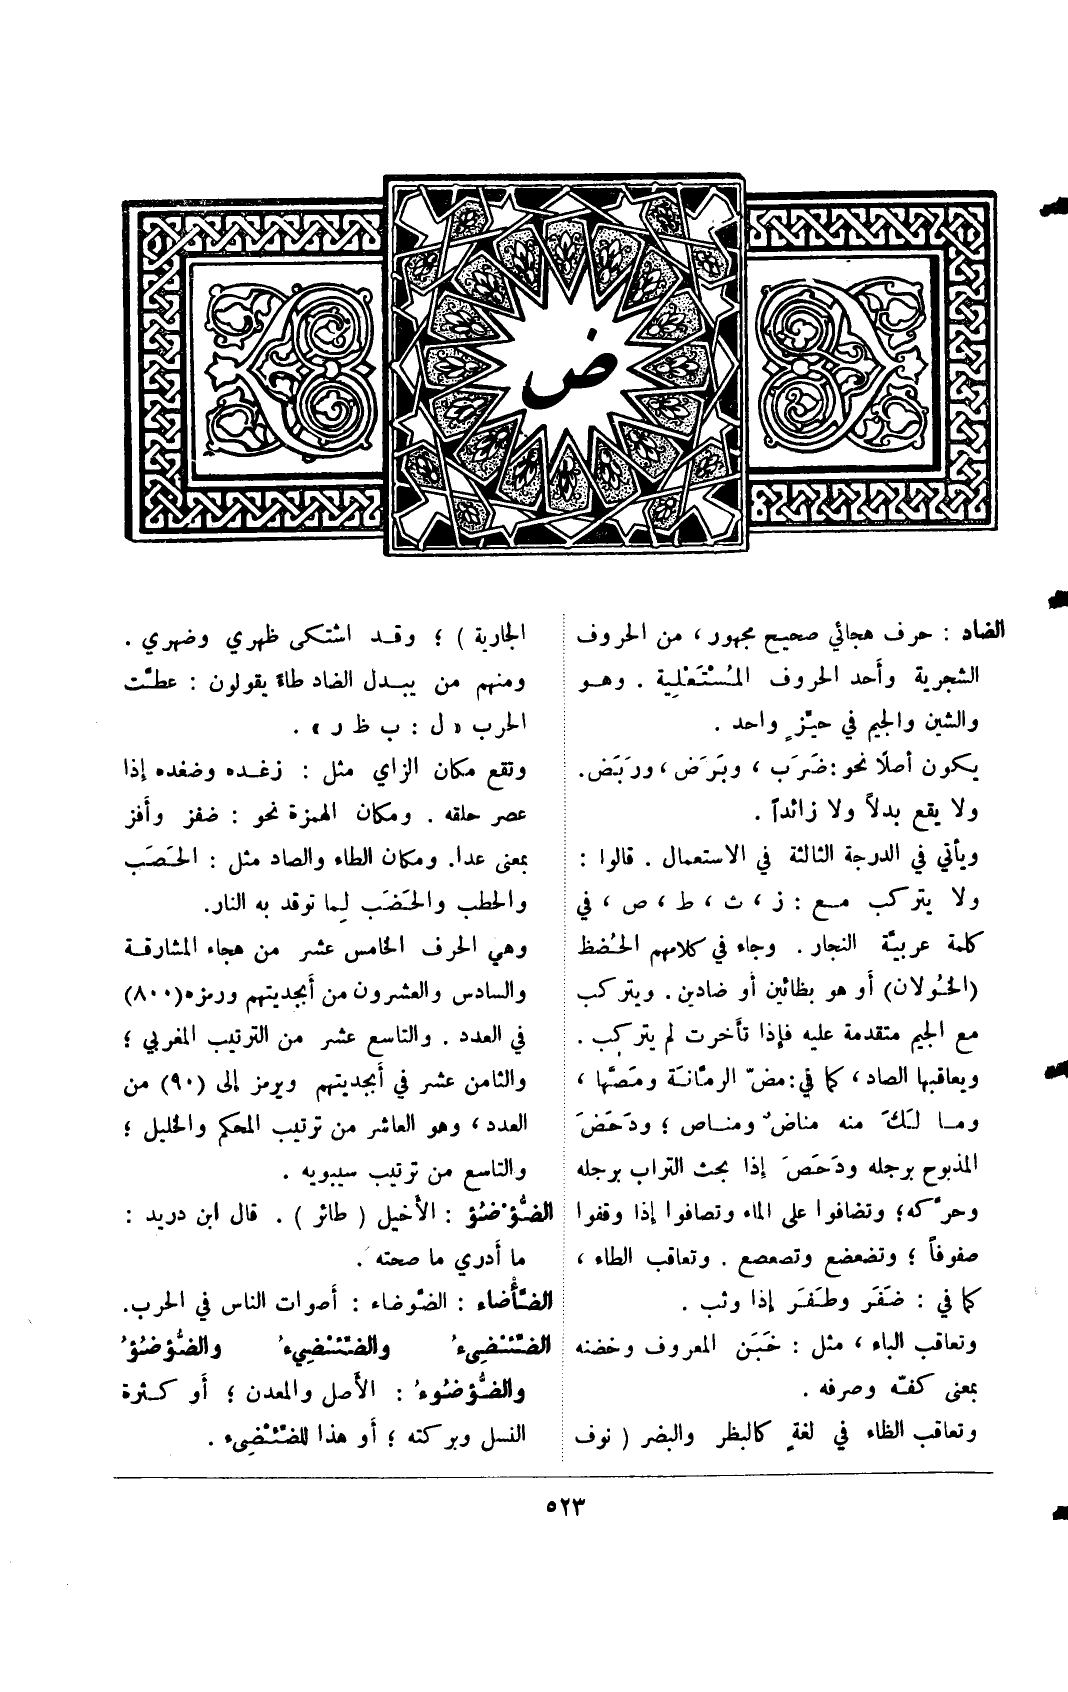 ض
الضاد : حرف هجائي صحيح مجهور ، من الحروف
الشجرية وأحد الحروف المُسْتَعْلِية . وهو
والشين والجيم في حيّزٍ واحد .
يكون أصلًا نحو : ضَرَب ، وبَرَض ، ورَبَض .
ولا يقع بدلاً ولا زائداً .
ويأتي في الدرجة الثالثة في الاستعمال . قالوا :
ولا يتركب مع : ز ، ث ، ط ، ص ، في
كلمة عربيّة النجار . وجاء في كلامهم الحُضظ
(الخُولان) أو هو بظائين أو ضادين . ويتركب
مع الجيم متقدمة عليه فإذا تأخرت لم يتركب .
ويعاقبها الصاد ، كما في : مضّ الرمّانَة ومَصَّها ،
وما لَكَ منه مناضٌ ومناص ؛ ودَحَضَ
المذبوح برجله ودَحَصَ إذا بحث التراب برجله
وحرّكه ؛ وتضافوا على الماء وتصافوا إذا وقفوا
صفوفاً ؛ وتضعضع وتصعصع . وتعاقب الطاء ،
كما في : ضَفَر وطَفَر إذا وثب .
وتعاقب الباء ، مثل : خَبَن المعروف وخضنه
بمعنى كفّه وصرفه .
وتعاقب الظاء في لغةٍ كالبظر والبضر ( نوف
الجارية ) ؛ وقد اشتكى ظهري وضهري .
ومنهم من يبدل الضاد ظاءً يقولون : عظّت
الحرب « ل : ب ظ ر » .
وتقع مكان الزاي مثل : زغده وضغده إذا
عصر حلقه . ومكان الهمزة نحو : ضفز وأفز
بمعنى عدا. ومكان الطاء والصاد مثل : الحَصَب
والحطب والحَضَب لِما توقد به النار.
وهي الحرف الخامس عشر من هجاء المشارقة
والسادس والعشرون من أبجديتهم ورمزه (٨٠٠)
في العدد . والتاسع عشر من الترتيب المغربي ؛
والثامن عشر في أبجديتهم ويرمز إلى (٩٠) من
العدد ، وهو العاشر من ترتيب المحكم والخليل ؛
والتاسع من ترتيب سيبويه .
الضُّؤْضُؤ : الأخيل ( طائر ) . قال ابن دريد :
ما أدري ما صحته .
الضَّأْضاء : الضَّوضاء : أصوات الناس في الحرب.
الضِّئْضِيءُ والضِّئْضِيءُ والضُّؤْضُؤُ
والضُّؤْضُوءُ : الأصل والمعدن ؛ أو كثرة
النسل وبركته ؛ أو هذا للضِّئْضِىء .
٥٢٣